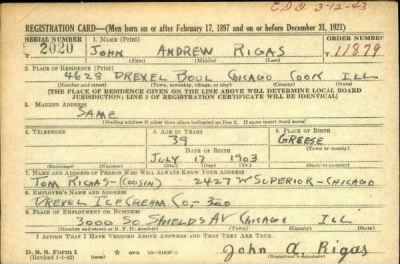 E.D.D. 3-12-43
REGISTRATION CARD—(Men born on or after February 17, 1897 and on or before December 31, 1921)
SERIAL NUMBER 1. NAME (Print) ORDER NUMBER
2020 JOHN ANDREW RIGAS 11879
(First) (Middle) (Last)
2. PLACE OF RESIDENCE (Print)
4628 DREXEL BOUL CHICAGO COOK ILL
(Number and street) (Town, township, village, or city) (County) (State)
[THE PLACE OF RESIDENCE GIVEN ON THE LINE ABOVE WILL DETERMINE LOCAL BOARD
JURISDICTION; LINE 2 OF REGISTRATION CERTIFICATE WILL BE IDENTICAL]
3. MAILING ADDRESS
SAME
[Mailing address if other than place indicated on line 2. If same insert word same]
4. TELEPHONE 5. AGE IN YEARS 6. PLACE OF BIRTH
39 GREESE
DATE OF BIRTH (Town or county)
JULY 17 1903
(Exchange) (Number) (Mo.) (Day) (Yr.) (State or country)
7. NAME AND ADDRESS OF PERSON WHO WILL ALWAYS KNOW YOUR ADDRESS
TOM RIGAS-(COUSIN) 2427 W SUPERIOR-CHICAGO
8. EMPLOYER'S NAME AND ADDRESS
DREXEL ICE CREAM CO-
9. PLACE OF EMPLOYMENT OR BUSINESS
3000 SO SHIELDS AV CHICAGO ILL
(Number and street or R. F. D. number) (Town) (County) (State)
I AFFIRM THAT I HAVE VERIFIED ABOVE ANSWERS AND THAT THEY ARE TRUE.
D. S. S. Form 1
(Revised 1-1-42) (over)
John A. Rigas